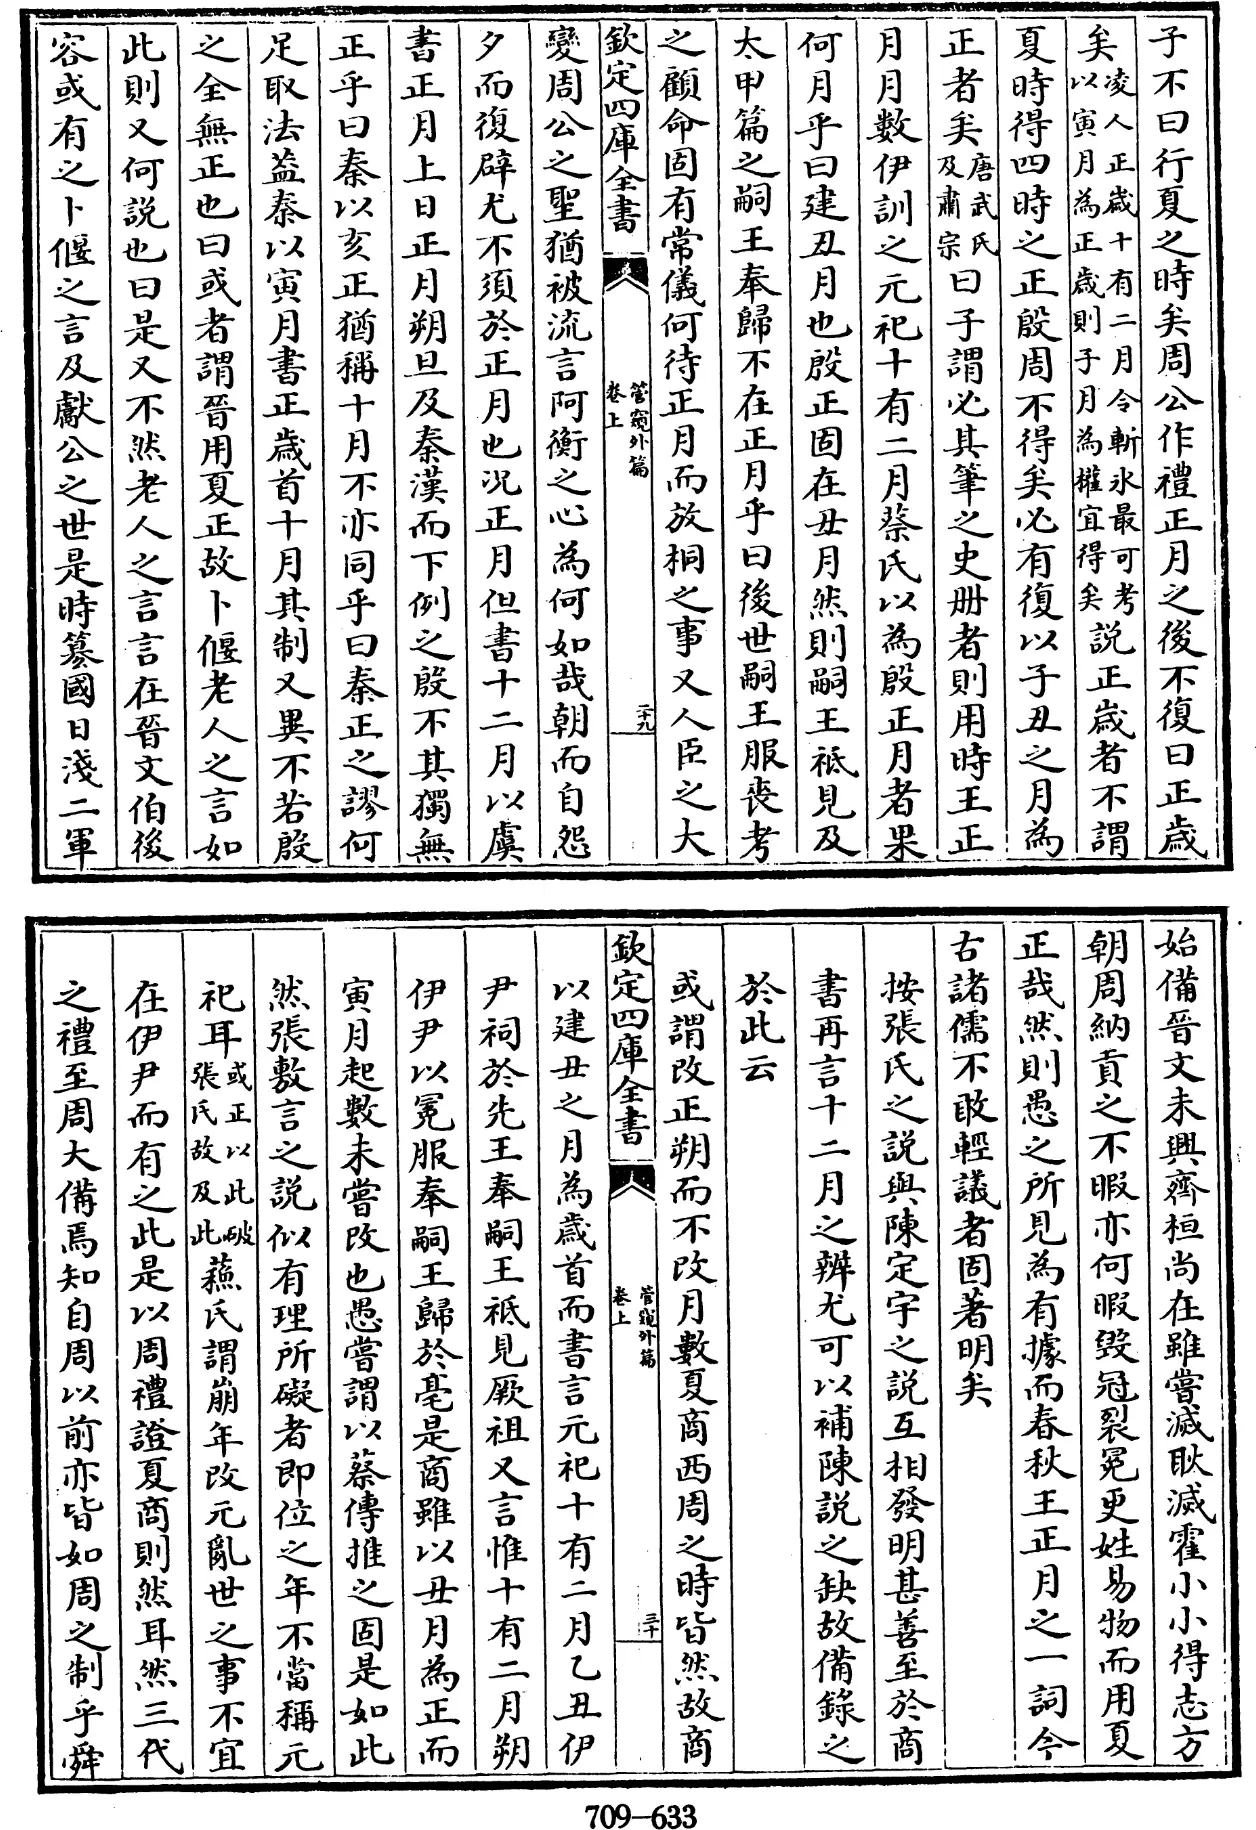 子不曰行夏之時矣周公作禮正月之後不復曰正歲
矣凌人正歲十有二月令斬氷最可考以寅月為正歲則子月為權宜得矣說正歲者不謂
夏時得四時之正殷周不得矣必有復以子丑之月為
正者矣唐武氏及肅宗曰子謂必其筆之史册者則用時王正
月月數伊訓之元祀十有二月蔡氏以為殷正月者果
何月乎曰建丑月也殷正固在丑月然則嗣王祗見及
太甲篇之嗣王奉歸不在正月乎曰後世嗣王服喪考
之顧命固有常儀何待正月而放桐之事又人臣之大
欽定四庫全書
管窺外篇
卷上
二十九
變周公之聖猶被流言阿衡之心為何如哉朝而自怨
夕而復辟尤不須於正月也况正月但書十二月以虞
書正月上日正月朔旦及秦漢而下例之殷不其獨無
正乎曰秦以亥正猶稱十月不亦同乎曰秦正之謬何
足取法蓋秦以寅月書正歲首十月其制又異不若殷
之全無正也曰或者謂晉用夏正故卜偃老人之言如
此則又何說也曰是又不然老人之言言在晉文伯後
容或有之卜偃之言及獻公之世是時篡國日淺二軍
始備晉文未興齊桓尚在雖嘗滅耿滅霍小小得志方
朝周納貢之不暇亦何暇毀冠裂冕更姓易物而用夏
正哉然則愚之所見為有據而春秋王正月之一詞今
古諸儒不敢輕議者固著明矣
按張氏之說與陳定宇之說互相發明甚善至於商
書再言十二月之辨尤可以補陳說之缺故備錄之
於此云
或謂改正朔而不改月數夏商西周之時皆然故商
欽定四庫全書
管窺外篇
卷上
三十
以建丑之月為歲首而書言元祀十有二月乙丑伊
尹祠於先王奉嗣王祗見厥祖又言惟十有二月朔
伊尹以冕服奉嗣王歸於亳是商雖以丑月為正而
寅月起數未嘗改也愚嘗謂以蔡傳推之固是如此
然張敷言之說似有理所礙者即位之年不當稱元
祀耳或正以此破張氏故及此蘓氏謂崩年改元亂世之事不宜
在伊尹而有之此是以周禮證夏商則然耳然三代
之禮至周大備焉知自周以前亦皆如周之制乎舜
709-633